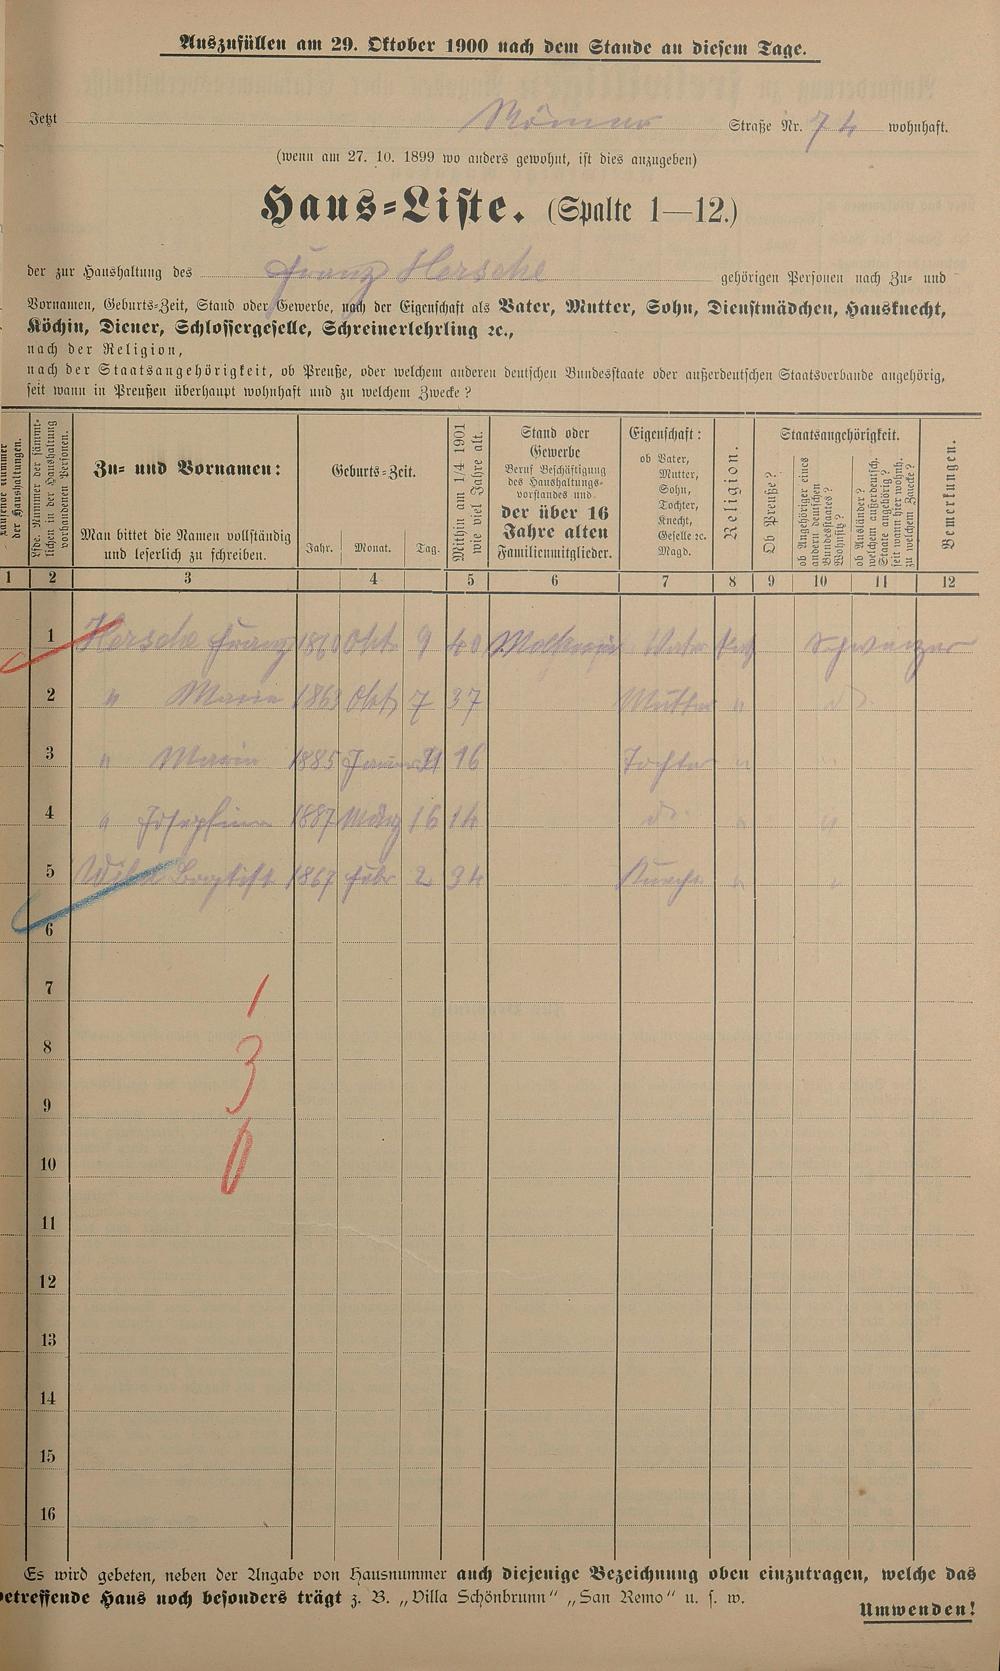 Auszufüllen am 29. Oktober 1900 nach dem Stande an diesem Tage.
Jetzt Römer Straße Nr. 74 wohnhaft.
(wenn am 27. 10. 1899 wo anders gewohnt, ist dies anzugeben)
Haus=Liste. (Spalte 1—12.)
der zur Haushaltung des Franz Hersche gehörigen Personen nach Zu- und
Vornamen, Geburts-Zeit, Stand oder Gewerbe, nach der Eigenschaft als Vater, Mutter, Sohn, Dienstmädchen, Hausknecht,
Köchin, Diener, Schlossergeselle, Schreinerlehrling ꝛc.,
nach der Religion,
nach der Staatsangehörigkeit, ob Preuße, oder welchem anderen deutschen Bundesstaate oder außerdeutschen Staatsverbande angehörig,
seit wann in Preußen überhaupt wohnhaft und zu welchem Zwecke?
Laufende Nummer der Haushaltungen.
Lfde. Nummer der sämmtlichen in der Haushaltung vorhandenen Personen.
Zu= und Vornamen:
Man bittet die Namen vollständig
und leserlich zu schreiben.
Geburts-Zeit.
Jahr. Monat. Tag.
Mithin am 1/4 1901
wie viel Jahre alt.
Stand oder
Gewerbe
Beruf Beschäftigung
des Haushaltungs-
vorstandes und
der über 16
Jahre alten
Familienmitglieder.
Eigenschaft:
ob Vater,
Mutter,
Sohn,
Tochter,
Knecht,
Geselle ꝛc.
Magd.
Religion.
Staatsangehörigkeit.
Ob Preuße?
ob Angehöriger eines
andern deutschen
Bundesstaates?
Wohnsitz?
ob Ausländer?
welchem außerdeutsch.
Staate angehörig?
seit wann hier wohnh.
zu welchem Zwecke?
Bemerkungen.
1 2 3 4 5 6 7 8 9 10 11 12
1 Hersche Franz 1860 Okt. 9 40 Vater kath Schweizer
2 " Marie 1863 Okt 7 37 Mutter " do.
3 " Marie 1885 Januar 16 Tochter " "
4 " Josephine 1887 März 16 14 do. " "
5 Baptist 1867 Febr 2 34 Knecht " "
6
7
1
8
3
9
10
0
11
12
13
14
15
16
Es wird gebeten, neben der Angabe von Hausnummer auch diejenige Bezeichnung oben einzutragen, welche das
betreffende Haus noch besonders trägt z. B. „Villa Schönbrunn" „San Remo" u. s. w.
Umwenden!